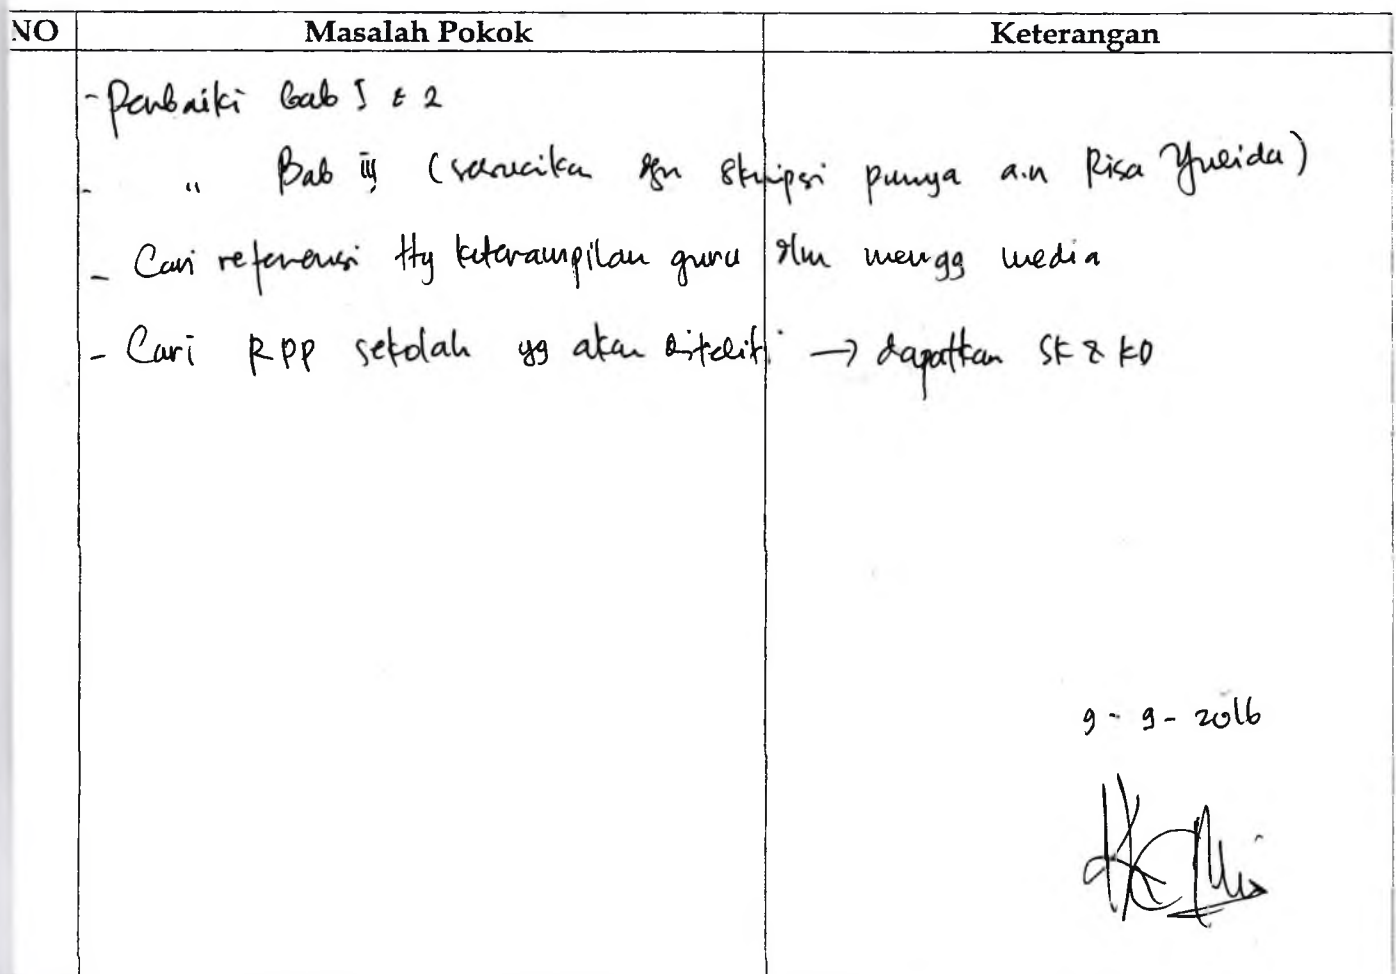 NO Masalah Pokok Keterangan
- Perbaiki bab I & 2
- " Bab iii (sesuaikan dgn skripsi punya a.n Risa Yuleida)
- Cari referensi ttg keterampilan guru dlm mengg media
- Cari RPP sekolah yg akan diteliti → dapatkan SK & KD
9 - 9 - 2016